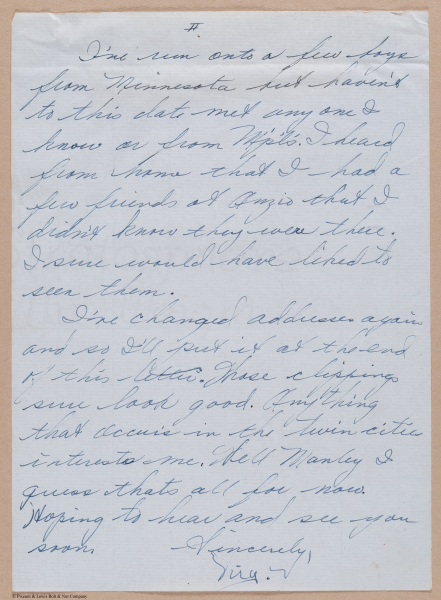 II
I've run onto a few boys
from Minnesota but haven't
to this date met anyone I
know or from Mpls. I heard
from home that I had a
few friends at Anzio that I
didn't know they were there.
I sure would have liked to
seen them.
I've changed addresses again
and so I'll put it at the end
of this letter. Those clippings
sure look good. Anything
that occurs in the twin cities
interests me. Well Manley I
guess thats all for now.
Hoping to hear and see you
soon.
Sincerely,
© Provost & Lewis Bolt & Nut Company